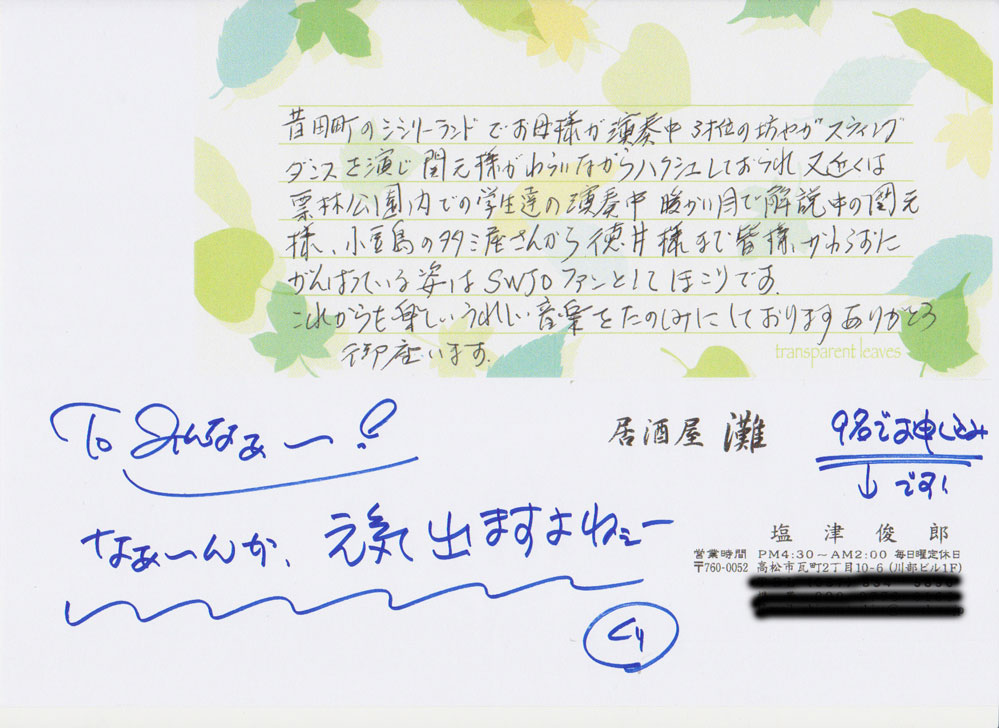 昔田町のシシリーランドでお母様が演奏中3才位の坊やがスティング
ダンスを演じ関元様がわらいながらハクシュしておられ又近くは
栗林公園内での学生達の演奏中暖かい目で解説中の関元
様、小豆島のタタミ屋さんから徳井様まで皆様かわらずに
がんばっている姿はSWJOファンとしてほこりです。
これからも楽しいうれしい音楽をたのしみにしておりますありがとう
御座います。
transparent leaves
To みんなぁー!
なぁーんか、元気出ますよねぇー
居酒屋 灘
9名でお申し込み
↓ です!
塩津俊郎
営業時間 PM4:30～AM2:00 毎日曜定休日
〒760-0052 高松市瓦町2丁目10-6 (川部ビル1F)